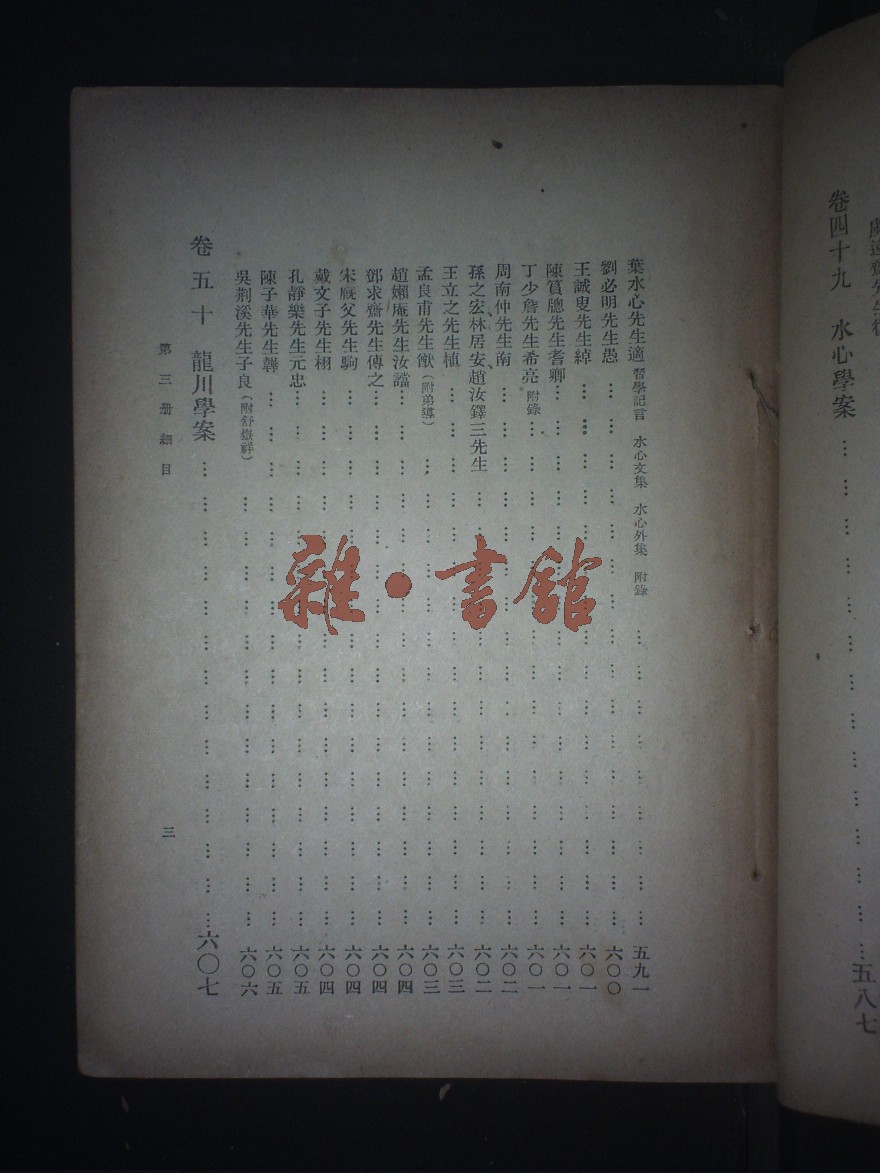 卷四十九　水心學案………………………………………五八七
葉水心先生適　習學記言　水心文集　水心外集　附錄………………………………五九一
劉必明先生愚………………………………六〇〇
王誠叟先生綽………………………………六〇一
陳篔牕先生耆卿………………………………六〇一
丁少詹先生希亮　附錄………………………………六〇一
周南仲先生南………………………………六〇二
孫之宏、林居安、趙汝鐸三先生………………………………六〇二
王立之先生植………………………………六〇三
孟良甫先生猷（附弟導）………………………………六〇三
趙嬾庵先生汝讜………………………………六〇四
鄧求齋先生傳之………………………………六〇四
宋廐父先生駒………………………………六〇四
戴文子先生栩………………………………六〇四
孔靜樂先生元忠………………………………六〇五
陳子華先生韡………………………………六〇五
吳荆溪先生子良（附舒嶽祥）………………………………六〇六
卷五十　龍川學案………………………………六〇七
第三册細目
三
雜・書館